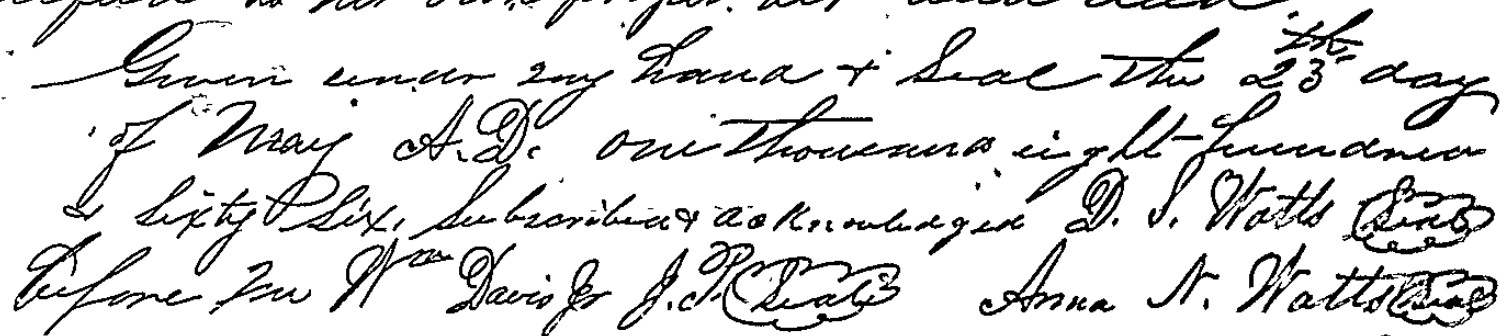 Given under my hand & Seal the 23th day
of May A.D. one thousand eight hundred
& Sixty Six. Subscribed & acknowledged D. S. Watts Seal
before me Wm Davis Jr J.P. Seal Anna N. Watts Seal